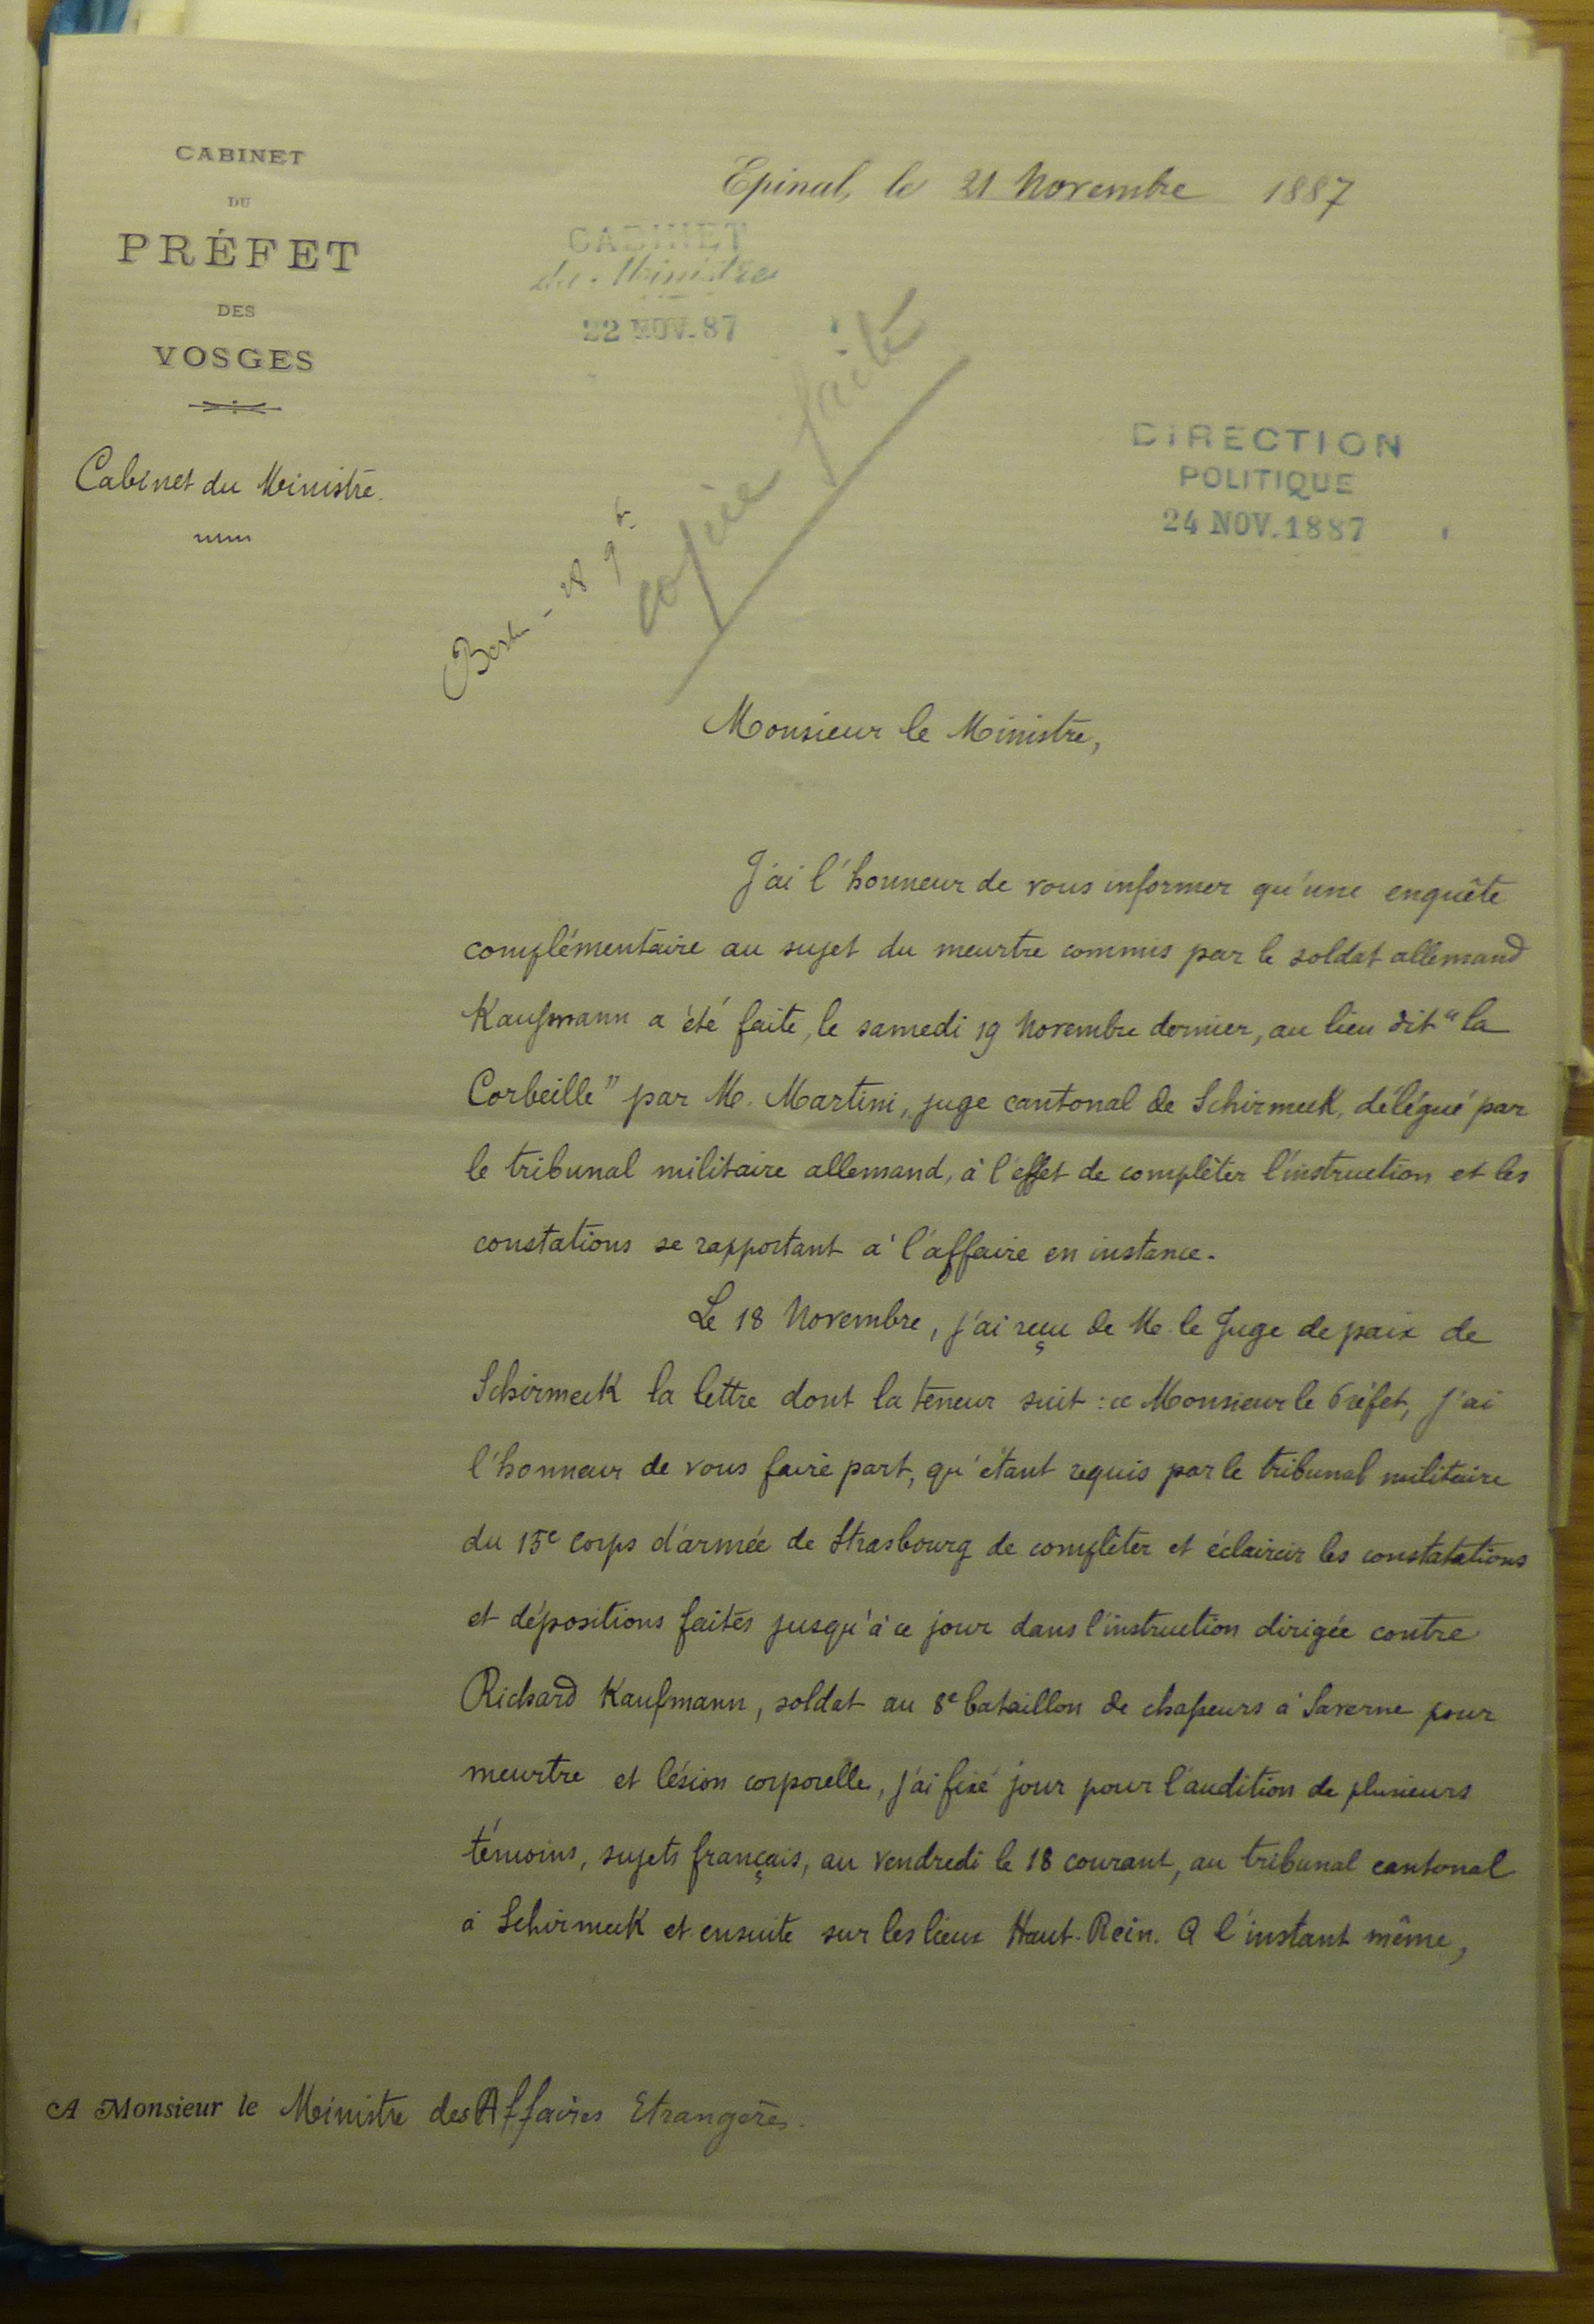 CABINET
DU
PRÉFET
DES
VOSGES
Cabinet du Ministre.
Epinal, le 21 Novembre 1887
CABINET
du Ministre
22 NOV. 87
copie faite
DIRECTION
POLITIQUE
24 NOV. 1887
Monsieur le Ministre,
J'ai l'honneur de vous informer qu'une enquête
complémentaire au sujet du meurtre commis par le soldat allemand
Kaufmann a été faite, le samedi 19 Novembre dernier, au lieu dit "la
Corbeille" par M. Martini, juge cantonal de Schirmeck, délégué par
le tribunal militaire allemand, à l'effet de compléter l'instruction et les
constations se rapportant à l'affaire en instance.
Le 18 Novembre, j'ai reçu de M. le Juge de paix de
Schirmeck la lettre dont la teneur suit : « Monsieur le Préfet, j'ai
l'honneur de vous faire part, qu'étant requis par le tribunal militaire
du 15e Corps d'armée de Strasbourg de compléter et éclaircir les constatations
et dépositions faites jusqu'à ce jour dans l'instruction dirigée contre
Richard Kaufmann, soldat au 8e bataillon de chasseurs à Saverne pour
meurtre et lésion corporelle, j'ai fixé jour pour l'audition de plusieurs
témoins, sujets français, au vendredi le 18 courant, au tribunal cantonal
à Schirmeck et ensuite sur les lieux Haut-Rein. A l'instant même,
A Monsieur le Ministre des Affaires Etrangères.